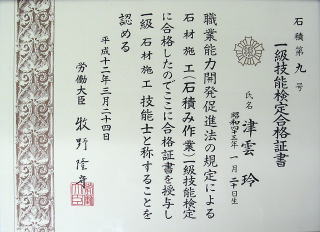 石積第九号
一級技能検定合格証書
氏名 津雲 玲
昭和四十三年一月二十日生
職業能力開発促進法の規定による
石材施工(石積み作業)一級技能検定
に合格したのでここに合格証書を授与し
一級石材施工技能士と称することを
認める
平成十二年三月二十四日
労働大臣 牧野隆守